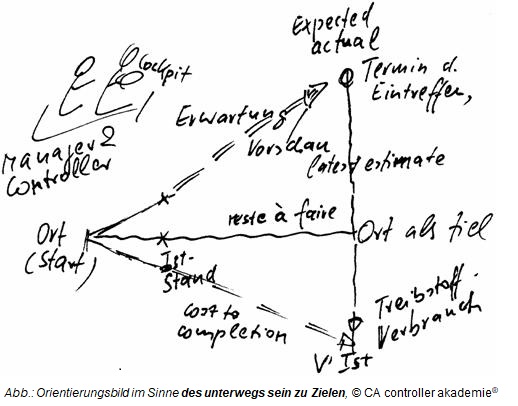 Expected
actual
Cockpit
Termin d.
Eintreffen,
Manager &
Controller
Erwartung
Vorschau
latest estimate
reste à faire
Ort
(Start)
Ist-
Stand
Ort als Ziel
cost to
completion
Treibstoff-
Verbrauch
V' Ist
Abb.: Orientierungsbild im Sinne des unterwegs sein zu Zielen, © CA controller akademie®